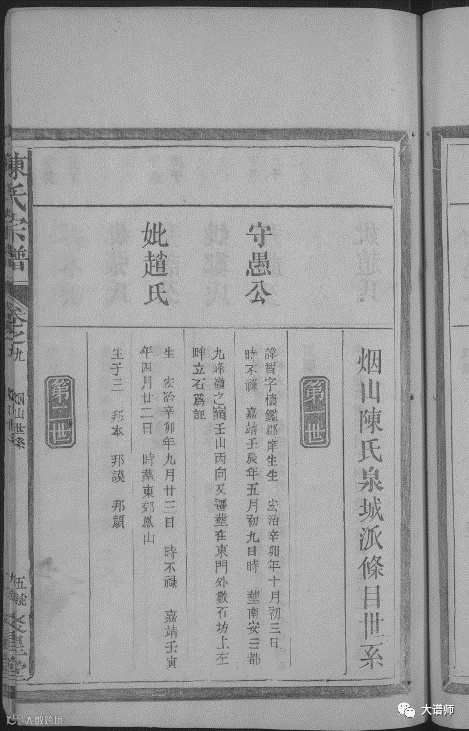 烟山陳氏泉城派條目世系
第一世
守愚公
諱智字懷鑑郡庠生生 宏治辛卯年十月初三日
時不祿 嘉靖壬辰年五月初九日時 塟南安三都
九峰嶺之嶺壬山丙向又遷塟在東門外數石坊上左
畔立石為記
妣趙氏
生 宏治辛卯年九月廿三日 時不祿 嘉靖壬寅
年四月廿二日 時塟東郊鳳山
生子三 邦本 邦謨 邦
第二世
陳氏宗譜
卷之九
烟山世系
妣趙氏
大谱师